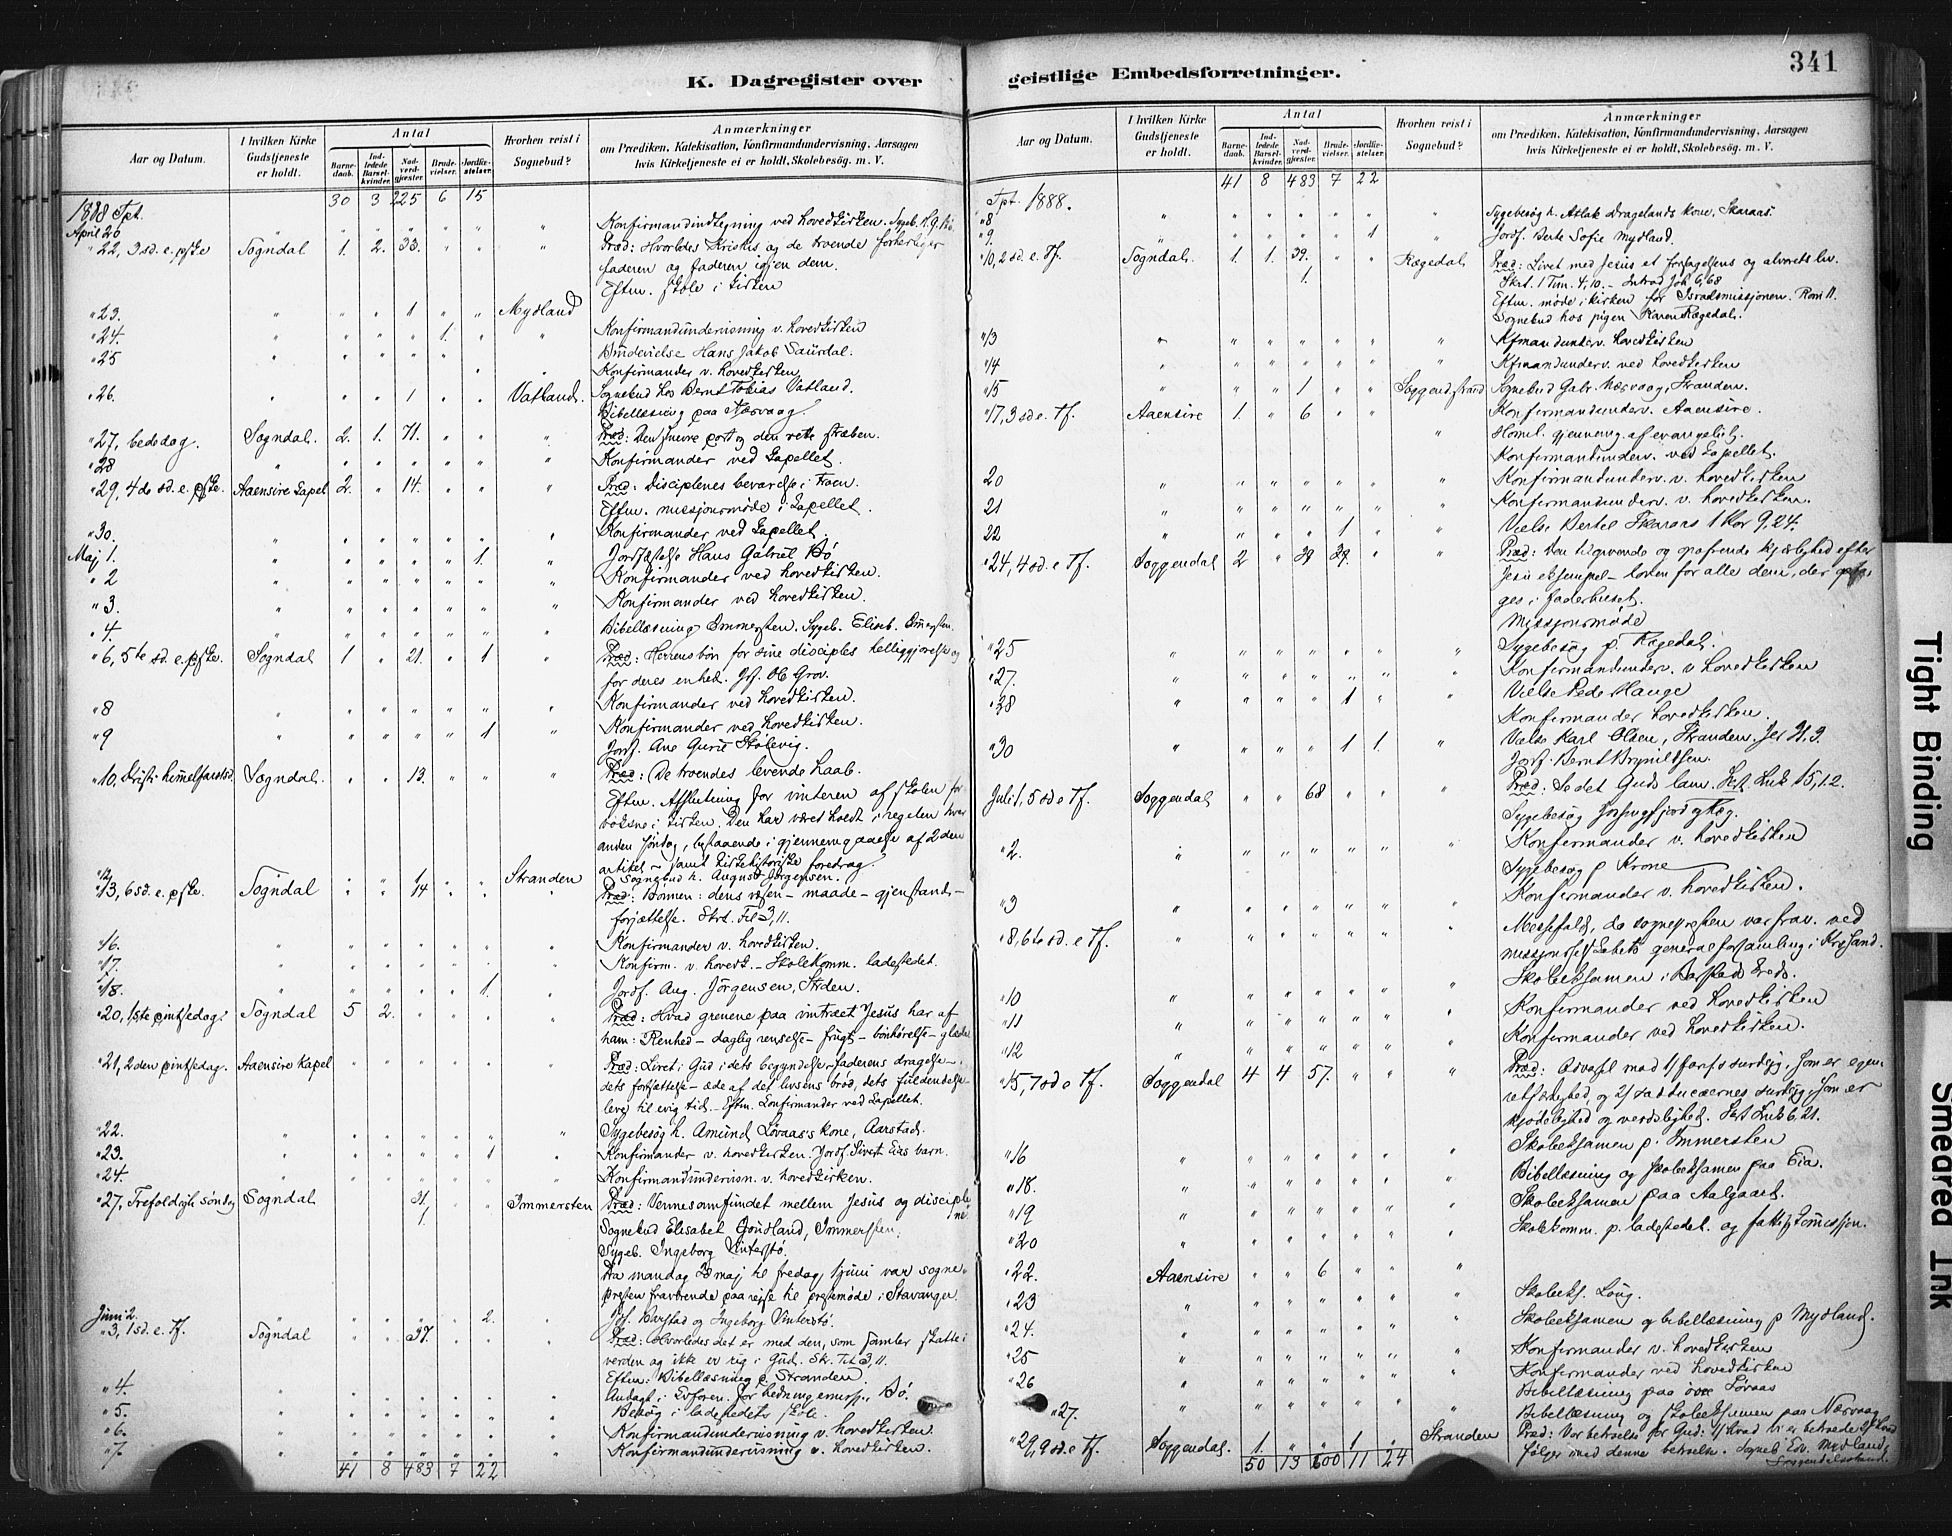 K. Dagregister over geistlige Embedsforretninger.
341
Aar og Datum.
I hvilken Kirke Gudstjeneste er holdt.
Antal
Barnedaab.
Indledede Barselkvinder.
Nadverdgjæster.
Brudevielser.
Jordfæstelser.
Hvorhen reist i Sognebud?
Anmærkninger
om Prædiken, Katekisation, Konfirmandundervisning, Aarsagen
hvis Kirketjeneste ei er holdt, Skolebesøg. m. V.
30 3 225 6 15
1888 Tpt.
April 20 " " " " " " " Konfirmandindtegning ved hovedkirken.
" 22, 3 sd. e. pske Sogndal 1. 2. 33. " " " Præd: Hvorledes Kristus og de troende forherliger
faderen og faderen igjen dem.
Eftm. skole i kirken
" 23. " " " 1 " " Mydland
" 24. " " " " 1. " " Konfirmandundervisning v. hovedkirken
Brudevielse Hans Jakob Saurdal.
" 25 Konfirmander v. hovedkirken
" 26. " " " 1 " " Vatland. Sognebud hos Bernt Tobias Vatland.
Bibellæsning paa Næsvaag.
" 27, bededag. Sogndal. 2. 1. 71. " " " Præd: Den snevre port og den rette stræben.
" 28 " " " " " " " Konfirmander ved kapellet.
" 29, 4de sd. e. pske. Aaensire Kapel 2. " 14. " " " Præd: Disciplenes bevarelse i troen.
Eftm. missjonsmøde i kapellet.
" 30. " " " " " " " Konfirmander ved kapellet
Maj 1. " " " " " 1. " Jordfæstelse Hans Gabriel Bø
" 2 " " " " " " " Konfirmander ved hovedkirken.
" 3. " " " " " " " Konfirmander ved hovedkirken.
" 4. " " " " " " " Bibellæsning Immersten. Sygeb. Elisab. Immersten.
" 6, 5te sd. e. pske. Sogndal 1 " 21. " 1 " Præd: Herrens bøn for sine disciples helliggjørelse og
for deres enhed.
" 8 " " " " " " " Konfirmander ved hovedkirken.
" 9 " " " " " 1 " Konfirmander ved hovedkirken.
Jordf. Ane Gurie Stølevig.
" 10, Kristi himmelfartsd. Sogndal. " " 13. " " " Præd: De troendes levende haab.
Eftm. Afslutning for vinteren af skolen for
voksne i kirken. Den har været holdt i regelen hver
anden søndag, bestaaende i gjennemgaaelse af 2den
artikel – samt kirkehistoriske foredrag.
" 12 " " 1 " " Stranden Sognebud h. August Jørgensen.
" 13, 6 sd. e. pske. Sogndal " " 14 " " " Præd: Bønnen: dens væsen – maade – gjenstand –
forjættelse. 3, 11.
" 16. " " " " " " " Konfirmander v. hovedkirken.
" 17. " " " " " " " Konfirm. v. hovedk. – Skolekomm. ladestedet.
" 18. " " " " " 1. " Jordf. Aug. Jörgensen, Strden.
" 20, 1ste pintsedag. Sogndal 5 2. " " " " Præd: Hvad grenene paa vintræet Jesus har af
ham: Renhed – daglig renselse – frugt – bønhørelse – glæde
" 21, 2den pintsedag. Aaensire kapel " " " " " " Præd: Livet i Gud i dets begyndelse faderens dragelse –
dets fortsættelse – æde af det livsens brød, dets fuldendelse
leve til evig tid. – Eftm. Konfirmander ved kapellet.
" 22. " " " " " " " Sygebesøg h. Amund Løvaas's kone, Aarstad.
" 23. " " " " " 1 " Konfirmander v. hovedkirken. Jordf. Sivert Eias barn.
" 24. " " " " " " " Konfirmandundervisn. v. hovedkirken.
" 27, Trefoldigh. søndag Sogndal " " 31, " " Immersten Præd: Vennesamfundet mellem Jesus og disciplene
1. Sognebud Elisabet Gursland, Immersten.
Sygeb. Ingeborg Vinterstø.
Fra mandag 28 maj til fredag 1 juni var sogne-
presten fraværende paa rejse til prestemøde i Stavanger.
Juni 2. " " " " " 2. Jof. Barstad og Ingeborg Vinterstø.
" 3, 1 sd. e. Tf. Sogndal " " 37. " " " Præd: Hvorledes det er med den, som samler skatte i
verden og ikke er rig i Gud. 3, 11.
Eftm: Bibellæsning p. Stranden.
" 4. " " " " " " " Bø.
" 5. " " " " " " " Besøg i ladestedets skole.
" 6. " " " " " " " Konfirmandundervisning v. hovedkirken.
" 7. " " " " " " " Konfirmandundervisning v. hovedkirken.
41 8 483 7 22
Aar og Datum.
I hvilken Kirke Gudstjeneste er holdt.
Antal
Barnedaab.
Indledede Barselkvinder.
Nadverdgjæster.
Brudevielser.
Jordfæstelser.
Hvorhen reist i Sognebud?
Anmærkninger
om Prædiken, Katekisation, Konfirmandundervisning, Aarsagen
hvis Kirketjeneste ei er holdt, Skolebesøg. m. V.
41 8 483 7 22
Tpt. 1888.
" 8 " " " " " " " Sygebesøg h. Aslak Dragelands kone, Skaraas.
" 9. " " " " " 1 " Jordf. Berte Sofie Mydland.
" 10, 2 sd. e. Tf. Sogndal. 1. 1. 39. " " Rægedal Præd: Livet med Jesus et forsagelsens og alvorets liv.
1. 1 Tim. 4, 10. – Introd Joh 6, 68
Eftm. møde i kirken for Israelsmissjonen. Rom 11.
Sognebud hos pigen Karen Rægedal.
" 13 " " " " " " " Kfmandunderv. hovedkirken
" 14 " " " " " " " Kfmandunderv. ved hovedkirken
" 15 " " " 1 " " Soggendstrand Sognebud Gabr. Næsvaag, Stranden.
" 17, 3 sd e. Tf. Aaensire 1. " 6 " " Konfirmandunderv. Aaensire.
Homil. gjennemg. af evangeliet.
Konfirmandunderv. ved kapellet.
20 " " " " " " " Konfirmandunderv. v. hovedkirken
21 " " " " " " " Konfirmandunderv. v. hovedkirken.
22 " " " " 1 " " Vielse Bertel Skaraas 1 Kor 9, 24.
" 24, 4 sd. e Tf. Soggendal 2 " 39 39. " " Præd: Den tilgivende og opofrende kjærlighed efter
Jesu eksempel – loven for alle dem, der
ges i faderhuset.
Missjonsmøde
" 25 " " " " " " " Sygebesøg p. Rægedal.
" 27. " " " " " " " Konfirmandunderv. v hovedkirken
" 28 " " " " 1 " " Vielse Peder Hauge
Konfirmander hovedkirken.
" 30 " " " " 1 1. " Vielse Karl Olsen, Stranden.
Jordf. Bernt Brynildsen.
Juli 1, 5 sd e Tf. Soggendal " " 68 " " " Præd: Se det Guds lam. Luk 15, 12.
Sygebesøg Jøssingfjord
" 2. " " " " " " " Konfirmander v. hovedkirken
Sygebesøg p Krone
" 3 " " " " " " " Konfirmander v. hovedkirken.
" 8, 6te sd. e Tf. " " " " " " " Messefald, da sognepresten var frav. ved
missjonsselskabets generalforsamling i Krsand.
Skoleeksamen i Barstads kreds.
" 10 " " " " " " " Konfirmander ved hovedkirken
" 11 " " " " " " " Konfirmander ved hovedkirken.
" 12
" 15, 7 sd e Tf. Soggendal 4 4 57. " " " Præd: Advarsel mod 1/ farisæersurdejg, som er egen-
retfærdighed, og 2/ sadducæernes surdejg, som er
kjødelighed og verdslighed. Luk 6, 21.
" 16 " " " " " " " Skoleeksamen p. Immersten
" 18. " " " " " " " Bibellæsning og skoleeksamen paa Eia.
" 19 " " " " " " " Skoleeksamen paa Aalgaard.
" 20 " " " " " " " Skolekomm. p. ladestedet. og fattigkomissjon.
" 22. Aaensire " " 6 " " "
" 23 " " " " " " " Skoleeks. Løug.
" 24. " " " " " " " Skoleeksamen og bibellæsning p Mydland.
" 25 " " " " " " " Konfirmander v. hovedkirken
" 26 " " " " " " " Konfirmander ved hovedkirken
Bibellæsning paa øvre Løvaas
" 27. " " " " " " " Bibellæsning og skoleeksamen paa Næsvaag
" 29, 9 sd. e Tf. Soggendal. 1. " " 1 " Stranden Præd: Vor betroelse for Gud: 1/ hvad vi er betroede 2/ hvad
følger med denne betroelse. Sogneb. Edv. Mydland,
Soggendalsstrand.
50 13 600 11 24
Tight Binding
Smeared Ink